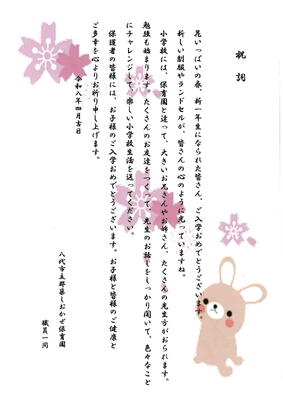 祝詞
花いっぱいの春、新一年生になられた皆さん、ご入学おめでとうございます。
新しい制服やランドセルが、皆さんの心のように光っていますね。
小学校には、保育園と違って、大きいお兄さんやお姉さん、たくさんの先生方がおられます。
勉強も始まります。たくさんのお友達をつくって、先生のお話しをしっかり聞いて、色々なこと
にチャレンジして、楽しい小学校生活を送ってください。
保護者の皆様には、お子様のご入学おめでとうございます。お子様と皆様のご健康と
ご多幸を心よりお祈り申し上げます。
令和八年四月吉日
八代市立郡築しおかぜ保育園
職員一同